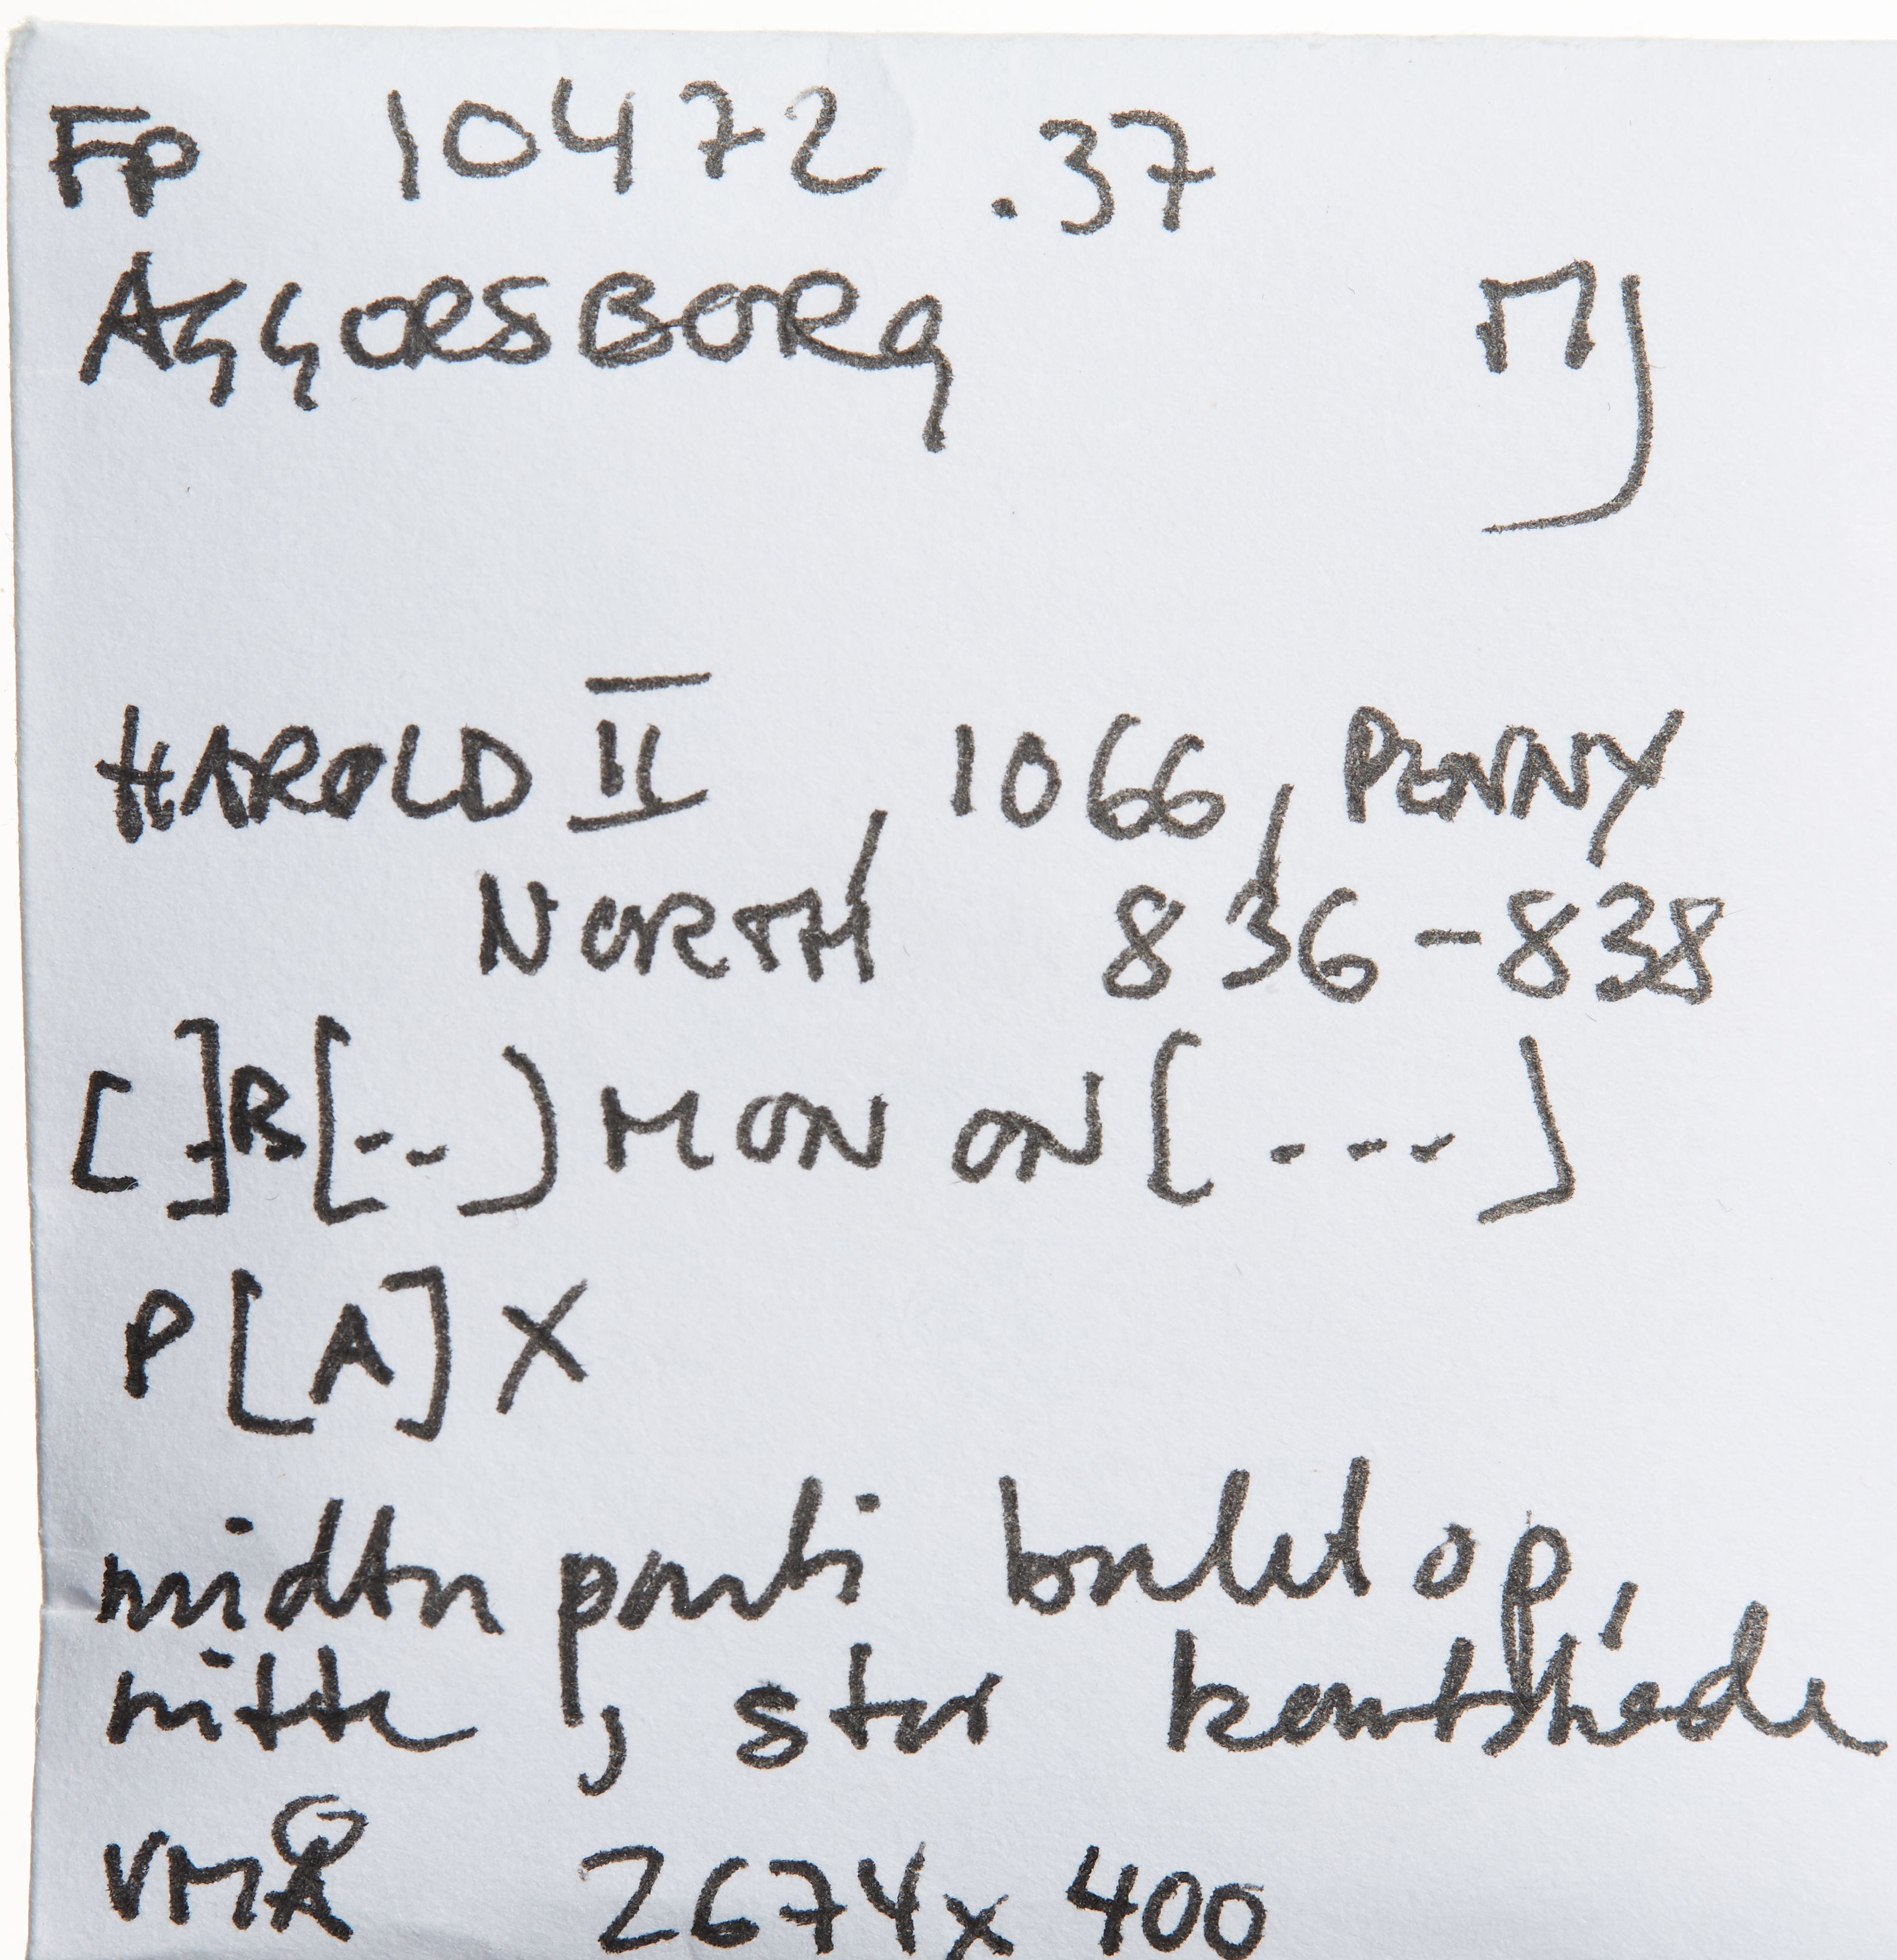 FP 10472 .37
AGGERSBORG MJ
HAROLD II, 1066, PENNY
NORTH 836-838
[ ]R[--) MON ON [---]
P[A]X
midtn parti bulet op,
nitte, stor kantskade
VMÅ 2674x400